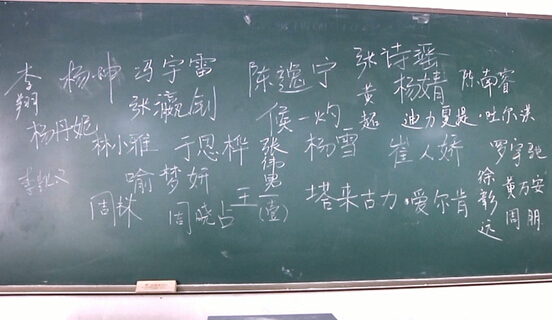 李翔
杨坤
冯宇雷
陈逸宁
张诗瑶
黄超
杨婧
陈南睿
张瀛剑
侯一灼
迪力夏提·吐尔洪
杨丹妮
林小雅
于恩桦
张伟男
杨雪
崔人娇
喻梦妍
王一(壹)
塔来古力·爱尔肯
徐彰远
黄万安
周林
周晓占
周朋